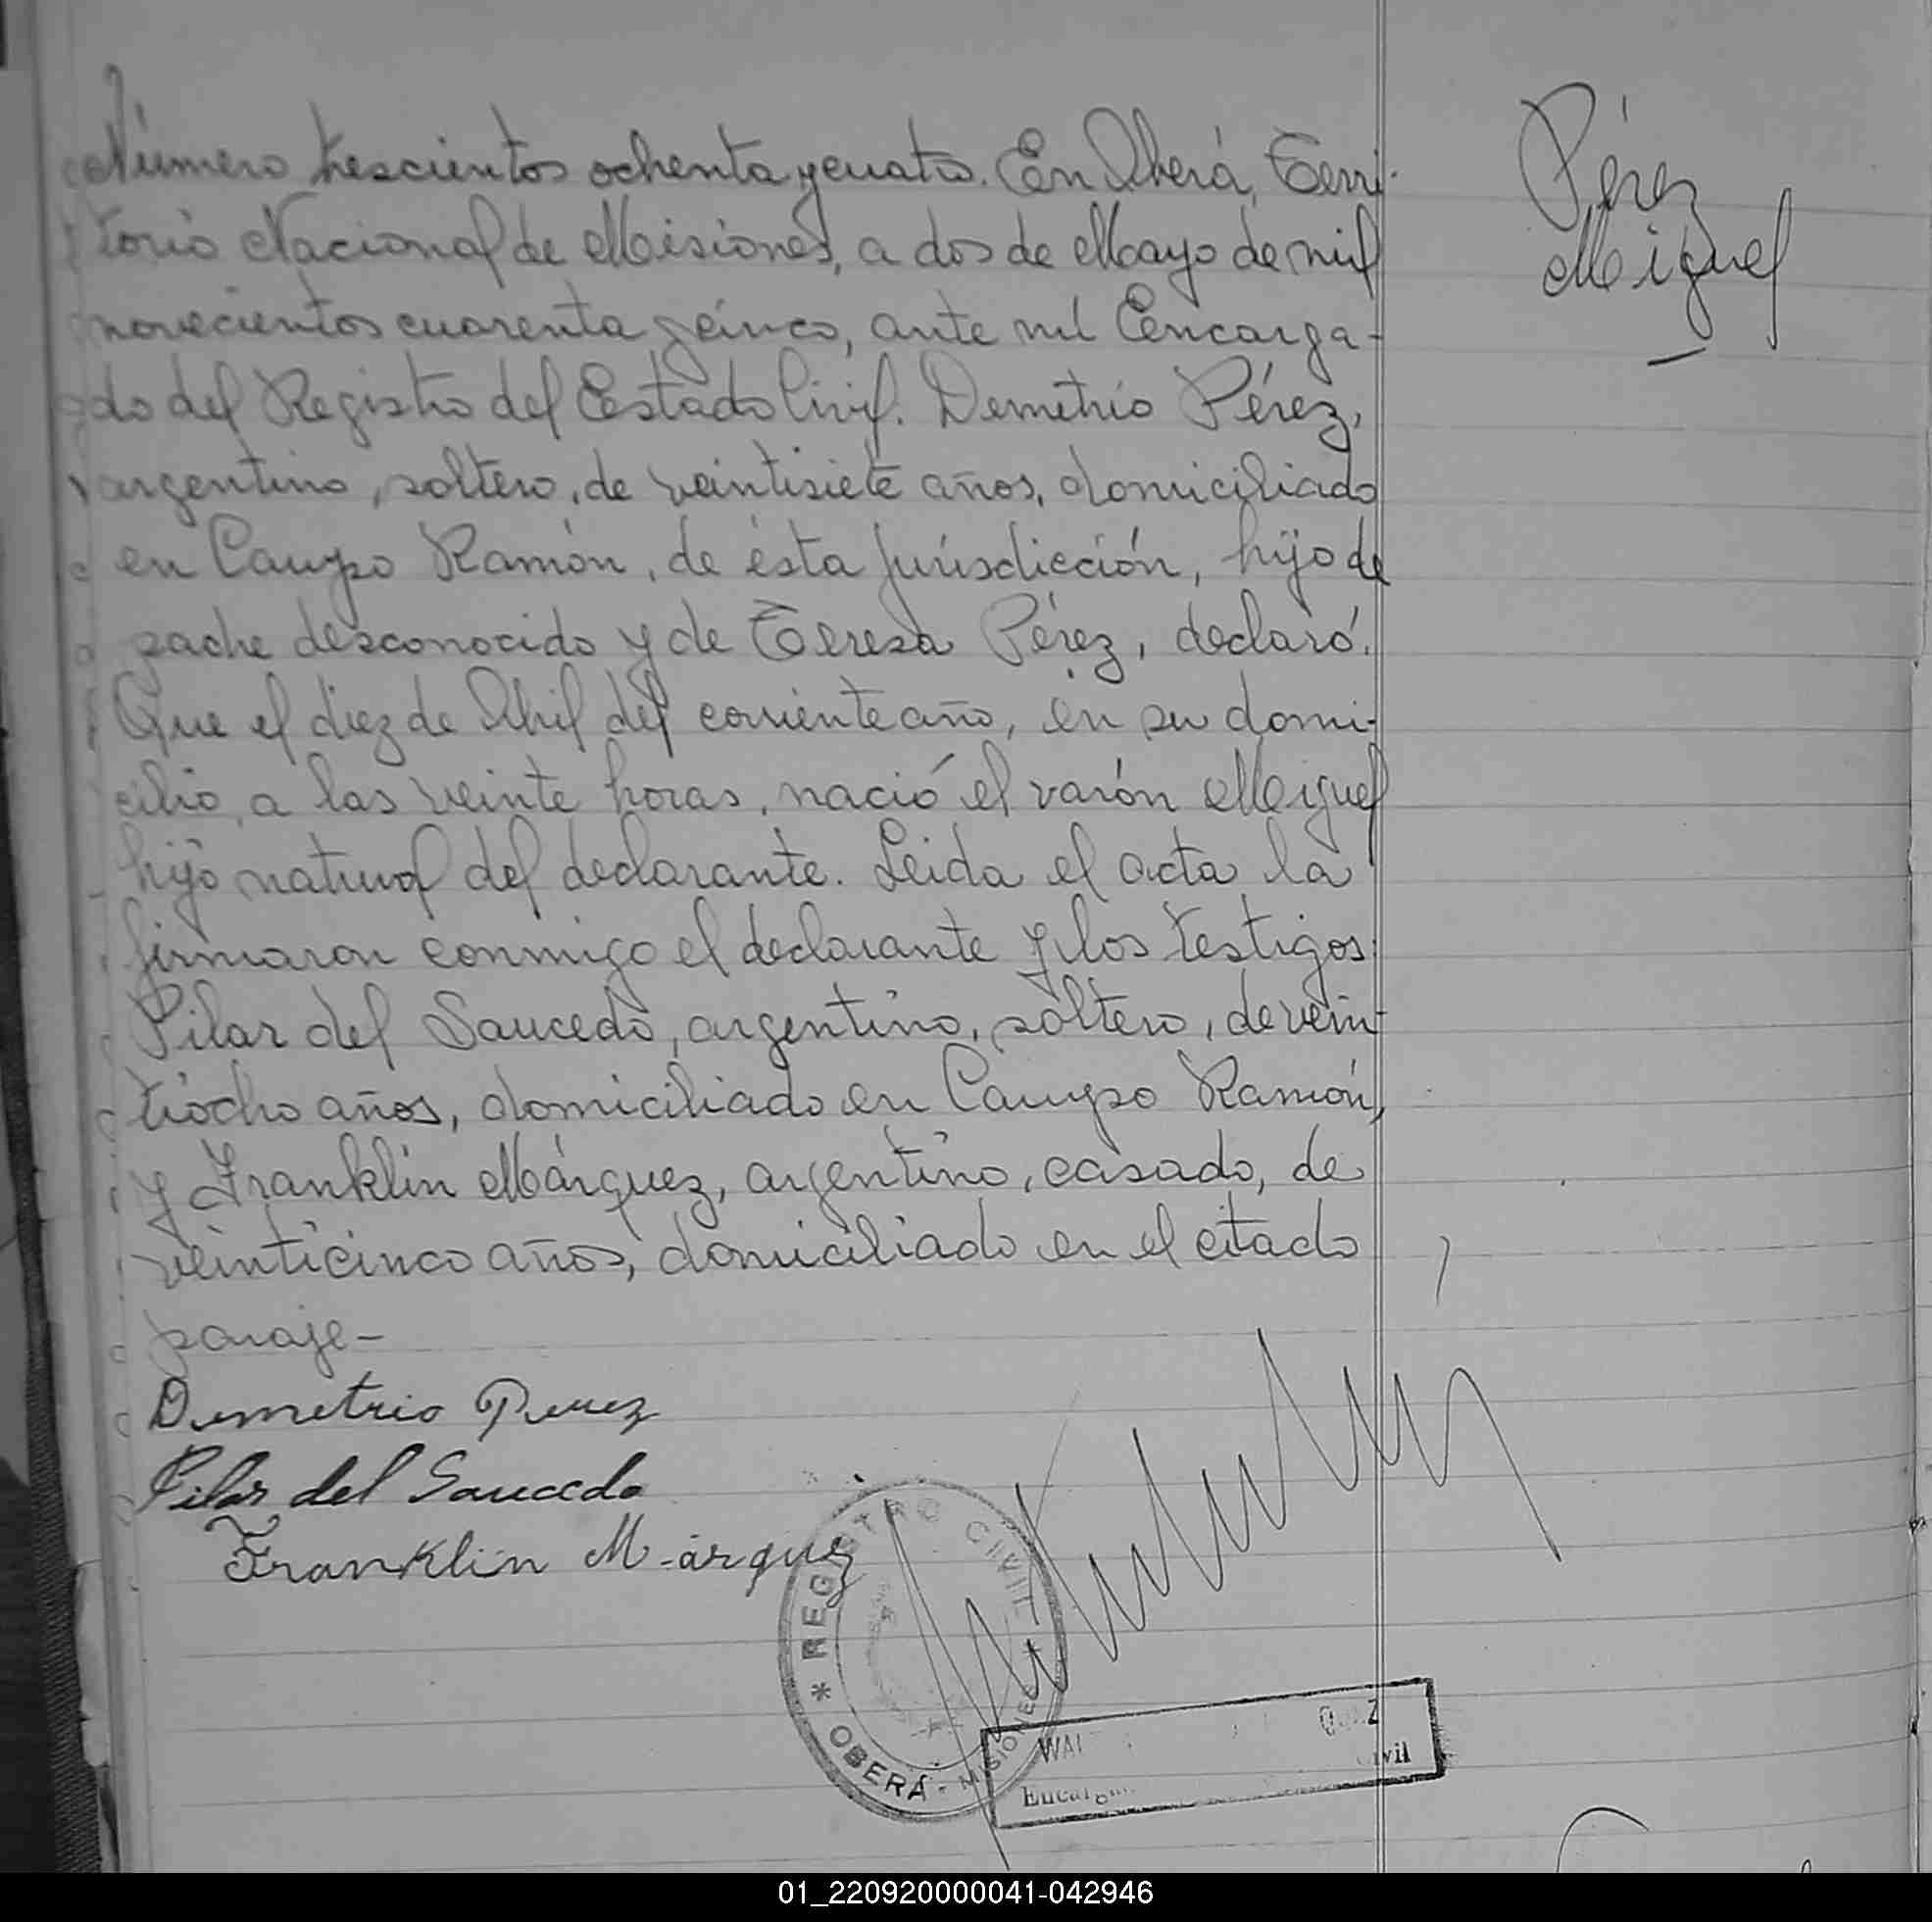 Número trescientos ochenta y cuatro. En Oberá, Terri-
torio Nacional de Misiones, a dos de Mayo de mil
novecientos cuarenta y cinco, ante mí Encarga-
do del Registro del Estado Civil. Demetrio Pérez,
argentino, soltero, de veintisiete años, domiciliado
en Campo Ramón, de ésta jurisdicción, hijo de
padre desconocido y de Teresa Pérez, declaró:
Que el diez de Abril del corriente año, en su domi-
cilio, a las veinte horas, nació el varón Miguel
hijo natural del declarante. Leida el acta la
firmaron conmigo el declarante y los testigos:
Pilar del Saucedo, argentino, soltero, de vein-
tiocho años, domiciliado en Campo Ramón,
y Franklin Márquez, argentino, casado, de
veinticinco años, domiciliado en el citado
paraje-
Pérez
Miguel
Demetrio Perez
Pilar del Saucedo
Franklin Márquez
* REGISTRO CIVIL *
OBERÁ - MISIONES
01_220920000041-042946